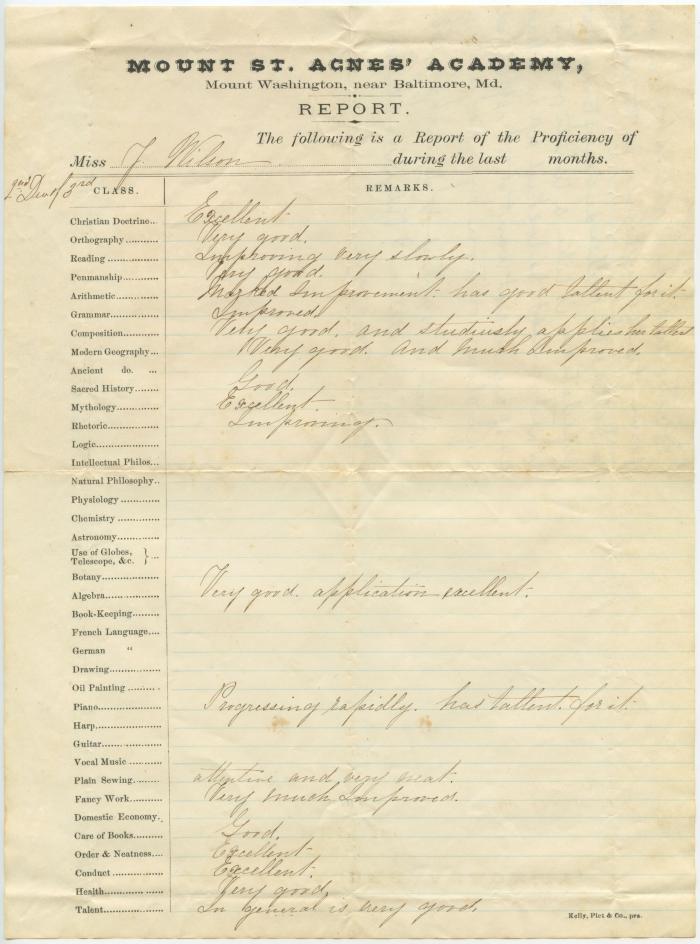 MOUNT ST. AGNES' ACADEMY,
Mount Washington, near Baltimore, Md.
REPORT.
The following is a Report of the Proficiency of
Miss J. Wilson during the last months.
3rd CLASS. REMARKS.
Christian Doctrine.. Excellent
Orthography........... Very good.
Reading .............. Improving very slowly.
Penmanship........... Very good.
Arithmetic............ Marked Improvement. has good tallent for it.
Grammar.............. Improved.
Composition.......... Very good. and studiiusly applies her tallent
Modern Geography... Very good. And Much Improved.
Ancient do. ...
Sacred History....... Good.
Mythology............ Excellent.
Rhetoric.............. Improving.
Logic.................
Intellectual Philos...
Natural Philosophy..
Physiology ............
Chemistry .............
Astronomy.............
Use of Globes,
Telescope, &c. } ...
Botany.................
Algebra................ Very good. application excellent.
Book-Keeping.........
French Language....
German "
Drawing...............
Oil Painting ..........
Piano.................. Progressing rapidly. has tallent for it.
Harp...................
Guitar.................
Vocal Music ..........
Plain Sewing......... attentive and very neat.
Fancy Work.......... Very much Improved.
Domestic Economy.
Care of Books........ Good.
Order & Neatness.... Excellent
Conduct ............... Excellent.
Health................. Very good,
Talent................. In general is very good.
Kelly, Piet & Co., prs.